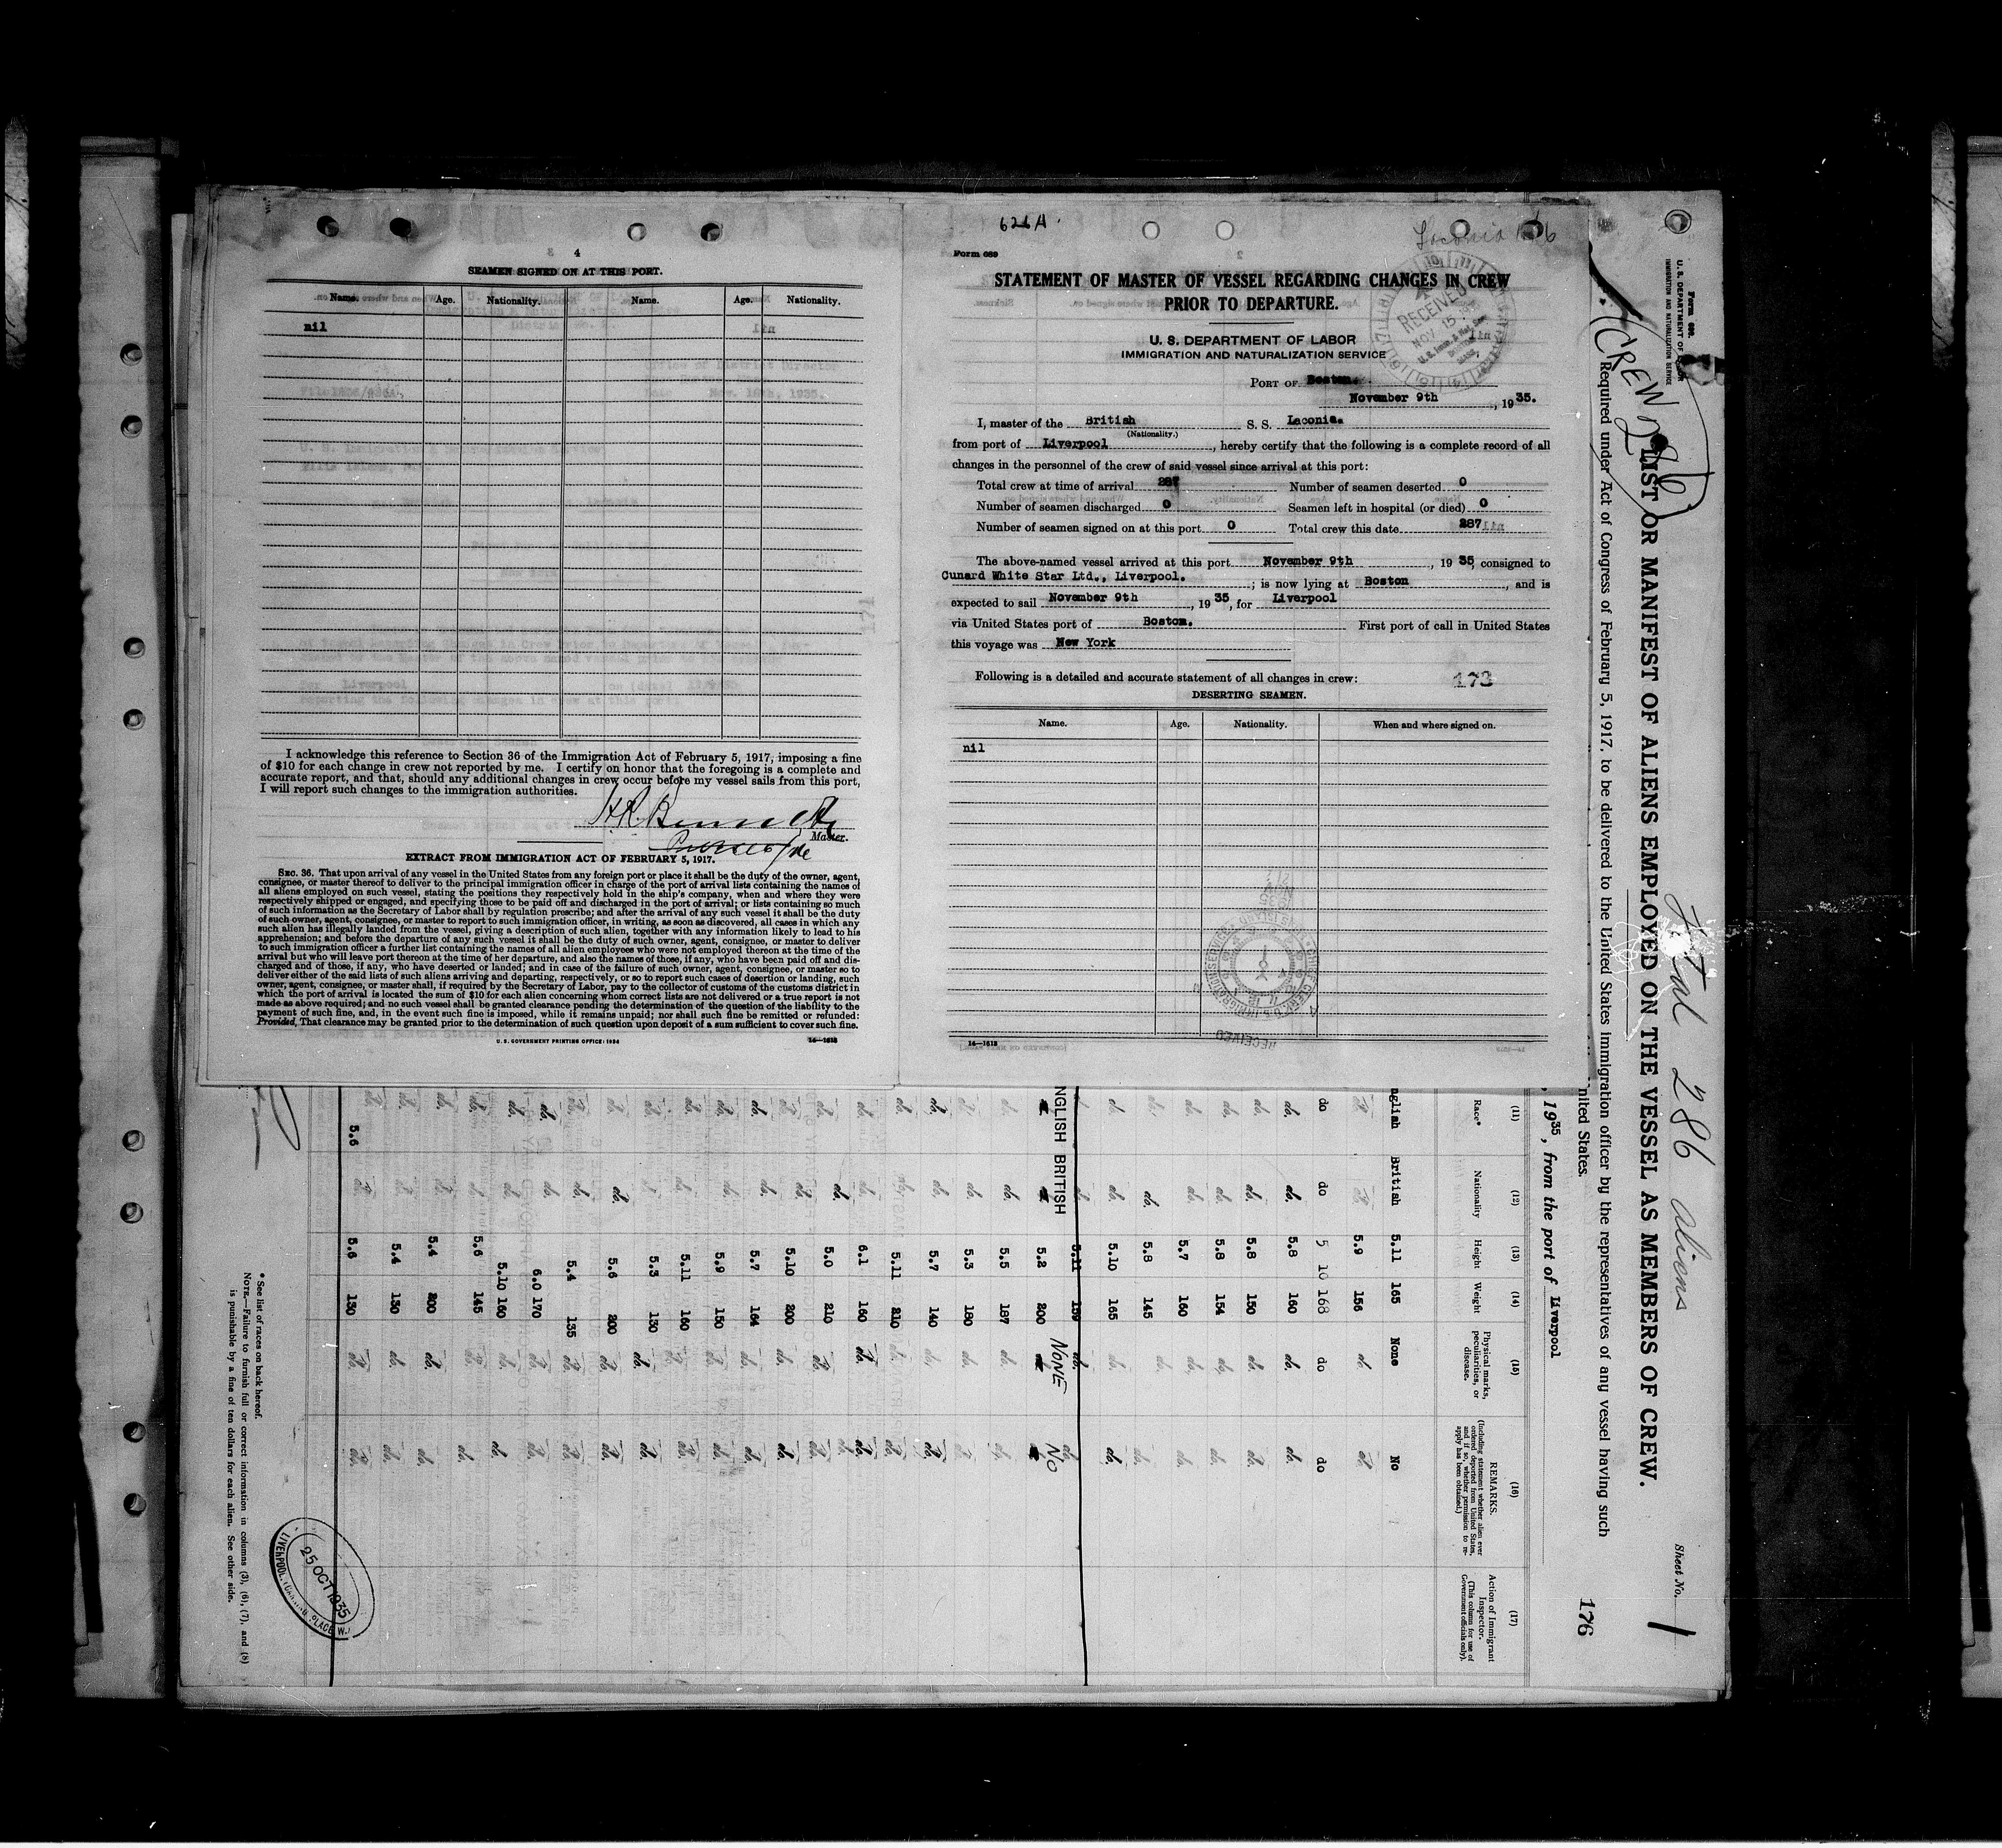 4
SEAMEN SIGNED ON AT THIS PORT.
Name. Age. Nationality. Name. Age. Nationality.
nil
I acknowledge this reference to Section 36 of the Immigration Act of February 5, 1917, imposing a fine
of $10 for each change in crew not reported by me. I certify on honor that the foregoing is a complete and
accurate report, and that, should any additional changes in crew occur before my vessel sails from this port,
I will report such changes to the immigration authorities.
Master.
EXTRACT FROM IMMIGRATION ACT OF FEBRUARY 5, 1917.
SEC. 36. That upon arrival of any vessel in the United States from any foreign port or place it shall be the duty of the owner, agent,
consignee, or master thereof to deliver to the principal immigration officer in charge of the port of arrival lists containing the names of
all aliens employed on such vessel, stating the positions they respectively hold in the ship's company, when and where they were
respectively shipped or engaged, and specifying those to be paid off and discharged in the port of arrival; or lists containing so much
of such information as the Secretary of Labor shall by regulation prescribe; and after the arrival of any such vessel it shall be the duty
of such owner, agent, consignee, or master to report to such immigration officer, in writing, as soon as discovered, all cases in which any
such alien has illegally landed from the vessel, giving a description of such alien, together with any information likely to lead to his
apprehension; and before the departure of any such vessel it shall be the duty of such owner, agent, consignee, or master to deliver
to such immigration officer a further list containing the names of all alien employees who were not employed thereon at the time of the
arrival but who will leave port thereon at the time of her departure, and also the names of those, if any, who have been paid off and dis-
charged and of those, if any, who have deserted or landed; and in case of the failure of such owner, agent, consignee, or master so to
deliver either of the said lists of such aliens arriving and departing, respectively, or so to report such cases of desertion or landing, such
owner, agent, consignee, or master shall, if required by the Secretary of Labor, pay to the collector of customs of the customs district in
which the port of arrival is located the sum of $10 for each alien concerning whom correct lists are not delivered or a true report is not
made as above required; and no such vessel shall be granted clearance pending the determination of the question of the liability to the
payment of such fine, and, in the event such fine is imposed, while it remains unpaid; nor shall such fine be remitted or refunded:
Provided, That clearance may be granted prior to the determination of such question upon deposit of a sum sufficient to cover such fine.
U. S. GOVERNMENT PRINTING OFFICE: 1934 14—1613
626A
Laconia
Form 689
STATEMENT OF MASTER OF VESSEL REGARDING CHANGES IN CREW
PRIOR TO DEPARTURE.
RECEIVED
NOV 15
U. S. DEPARTMENT OF LABOR
IMMIGRATION AND NATURALIZATION SERVICE
PORT OF Boston.
November 9th, 1935.
I, master of the British S. S. Laconia.
(Nationality.)
from port of Liverpool, hereby certify that the following is a complete record of all
changes in the personnel of the crew of said vessel since arrival at this port:
Total crew at time of arrival 287 Number of seamen deserted 0
Number of seamen discharged 0 Seamen left in hospital (or died) 0
Number of seamen signed on at this port 0 Total crew this date 287
The above-named vessel arrived at this port November 9th, 1935, consigned to
Cunard White Star Ltd., Liverpool.; is now lying at Boston, and is
expected to sail November 9th, 1935, for Liverpool
via United States port of Boston. First port of call in United States
this voyage was New York
Following is a detailed and accurate statement of all changes in crew: 173
DESERTING SEAMEN.
Name. Age. Nationality. When and where signed on.
nil
RECEIVED
14—1613
Form 689
U. S. DEPARTMENT OF LABOR
IMMIGRATION AND NATURALIZATION SERVICE
Total 286 aliens
Sheet No. 1
CREW 286
LIST OR MANIFEST OF ALIENS EMPLOYED ON THE VESSEL AS MEMBERS OF CREW.
Required under Act of Congress of February 5, 1917, to be delivered to the United States immigration officer by the representatives of any vessel having such
nited States.
176
, 1935, from the port of Liverpool
(11) (12) (13) (14) (15) (16) (17)
Race* Nationality Height Weight Physical marks, peculiarities, or disease. REMARKS. (Including statement whether alien ever ordered deported from United States, and if so, whether permission to re-apply has been obtained.) Action of Immigrant Inspector. (This column for use of Government officials only).
nglish British 5.11 165 None No
do. do. 5.9 156 do. do.
do do 5 10 168 do do
do. do. 5.8 160 do. do.
do. do. 5.8 150 do. do.
do. do. 5.8 154 do. do.
do. do. 5.7 160 do. do.
do. do. 5.8 145 do. do.
do. do. 5.10 165 do. do.
do. do. 5.11 159 do. do.
NGLISH BRITISH 5.2 200 NONE NO
do. do. 5.5 187 do. do.
do. do. 5.3 180 do. do.
do. do. 5.7 140 do. do.
do. do. 5.11 210 do. do.
do. do. 6.1 160 do. do.
do. do. 5.0 210 do. do.
do. do. 5.10 200 do. do.
do. do. 5.7 164 do. do.
do. do. 5.9 150 do. do.
do. do. 5.11 160 do. do.
do. do. 5.3 130 do. do.
do. do. 5.6 200 do. do.
do. do. 5.4 135 do. do.
do. do. 6.0 170 do. do.
do. do. 5.10 160 do. do.
do. do. 5.6 145 do. do.
do. do. 5.4 200 do. do.
do. do. 5.4 130 do. do.
5.6 do. do. 5.6 130 do. do.
* See list of races on back hereof.
NOTE.—Failure to furnish full or correct information in columns (3), (6), (7), and (8)
is punishable by a fine of ten dollars for each alien. See other side.
25 OCT 1935
LIVERPOOL